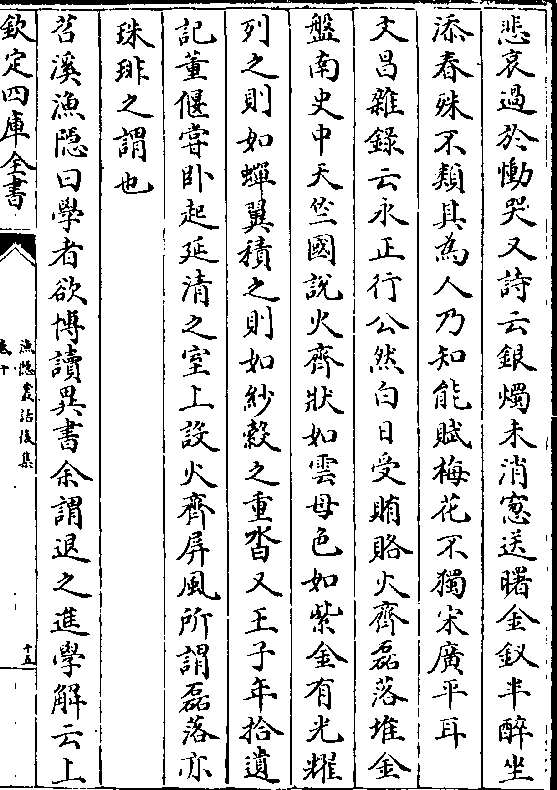 悲哀過於慟哭又詩云銀燭未消窓送曙金釵半醉坐
添春殊不類其為人乃知能賦梅花不獨宋廣平耳
文昌雜錄云永正行公然白日受賄賂火齊磊落堆金
盤南史中天竺國說火齊狀如雲母色如紫金有光耀
列之則如蟬翼積之則如紗縠之重沓又王子年拾遺
記董偃嘗卧起延清之室上設火齊屏風所謂磊落亦
珠琲之謂也
苕溪漁隐曰學者欲博讀異書余謂退之進學解云上
欽定四庫全書
漁隐叢話後集
卷十
十五